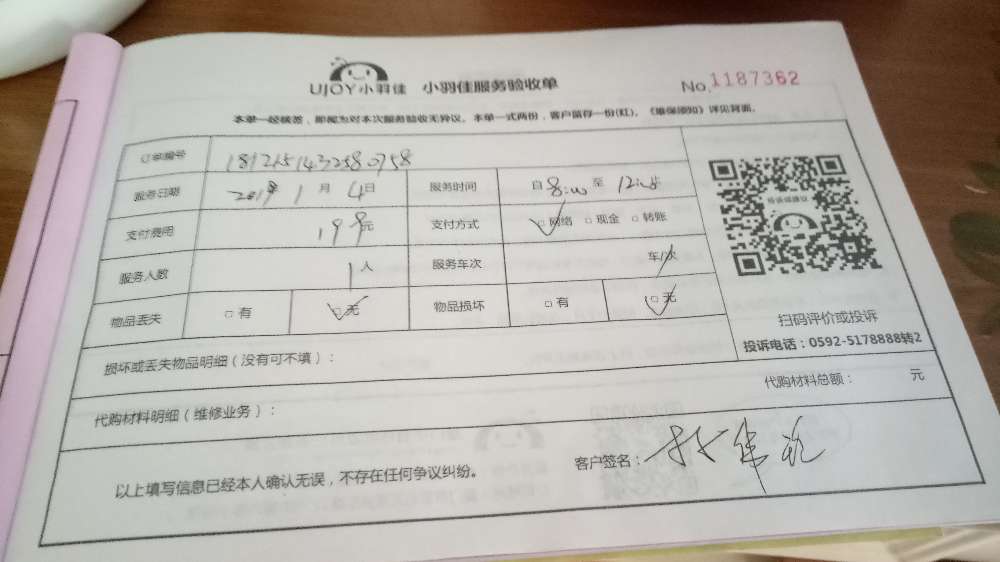 UJOY小羽佳 小羽佳服务验收单 No.1187362
本单一经核签，即视为对本次服务验收无异议。本单一式两份，客户留存一份(红)。《维保须知》详见背面。
订单编号 1812151432580758
服务日期 2019年1月4日 服务时间 自8:00至12:00
支付费用 198元 支付方式 □网络 □现金 □转账
服务人数 1人 服务车次 车/次
物品丢失 □有 □无 物品损坏 □有 □无
投诉或建议
扫码评价或投诉
投诉电话：0592-5178888转2
损坏或丢失物品明细（没有可不填）：
代购材料明细（维修业务）： 代购材料总额： 元
以上填写信息已经本人确认无误，不存在任何争议纠纷。 客户签名：